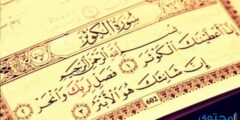 سورة الكوثر
بسم الله الرحمن الرحيم
إنا أعطيناك الكوثر ١ فصل لربك وانحر ٢
إن شانئك هو الأبتر ٣
602
محتوى